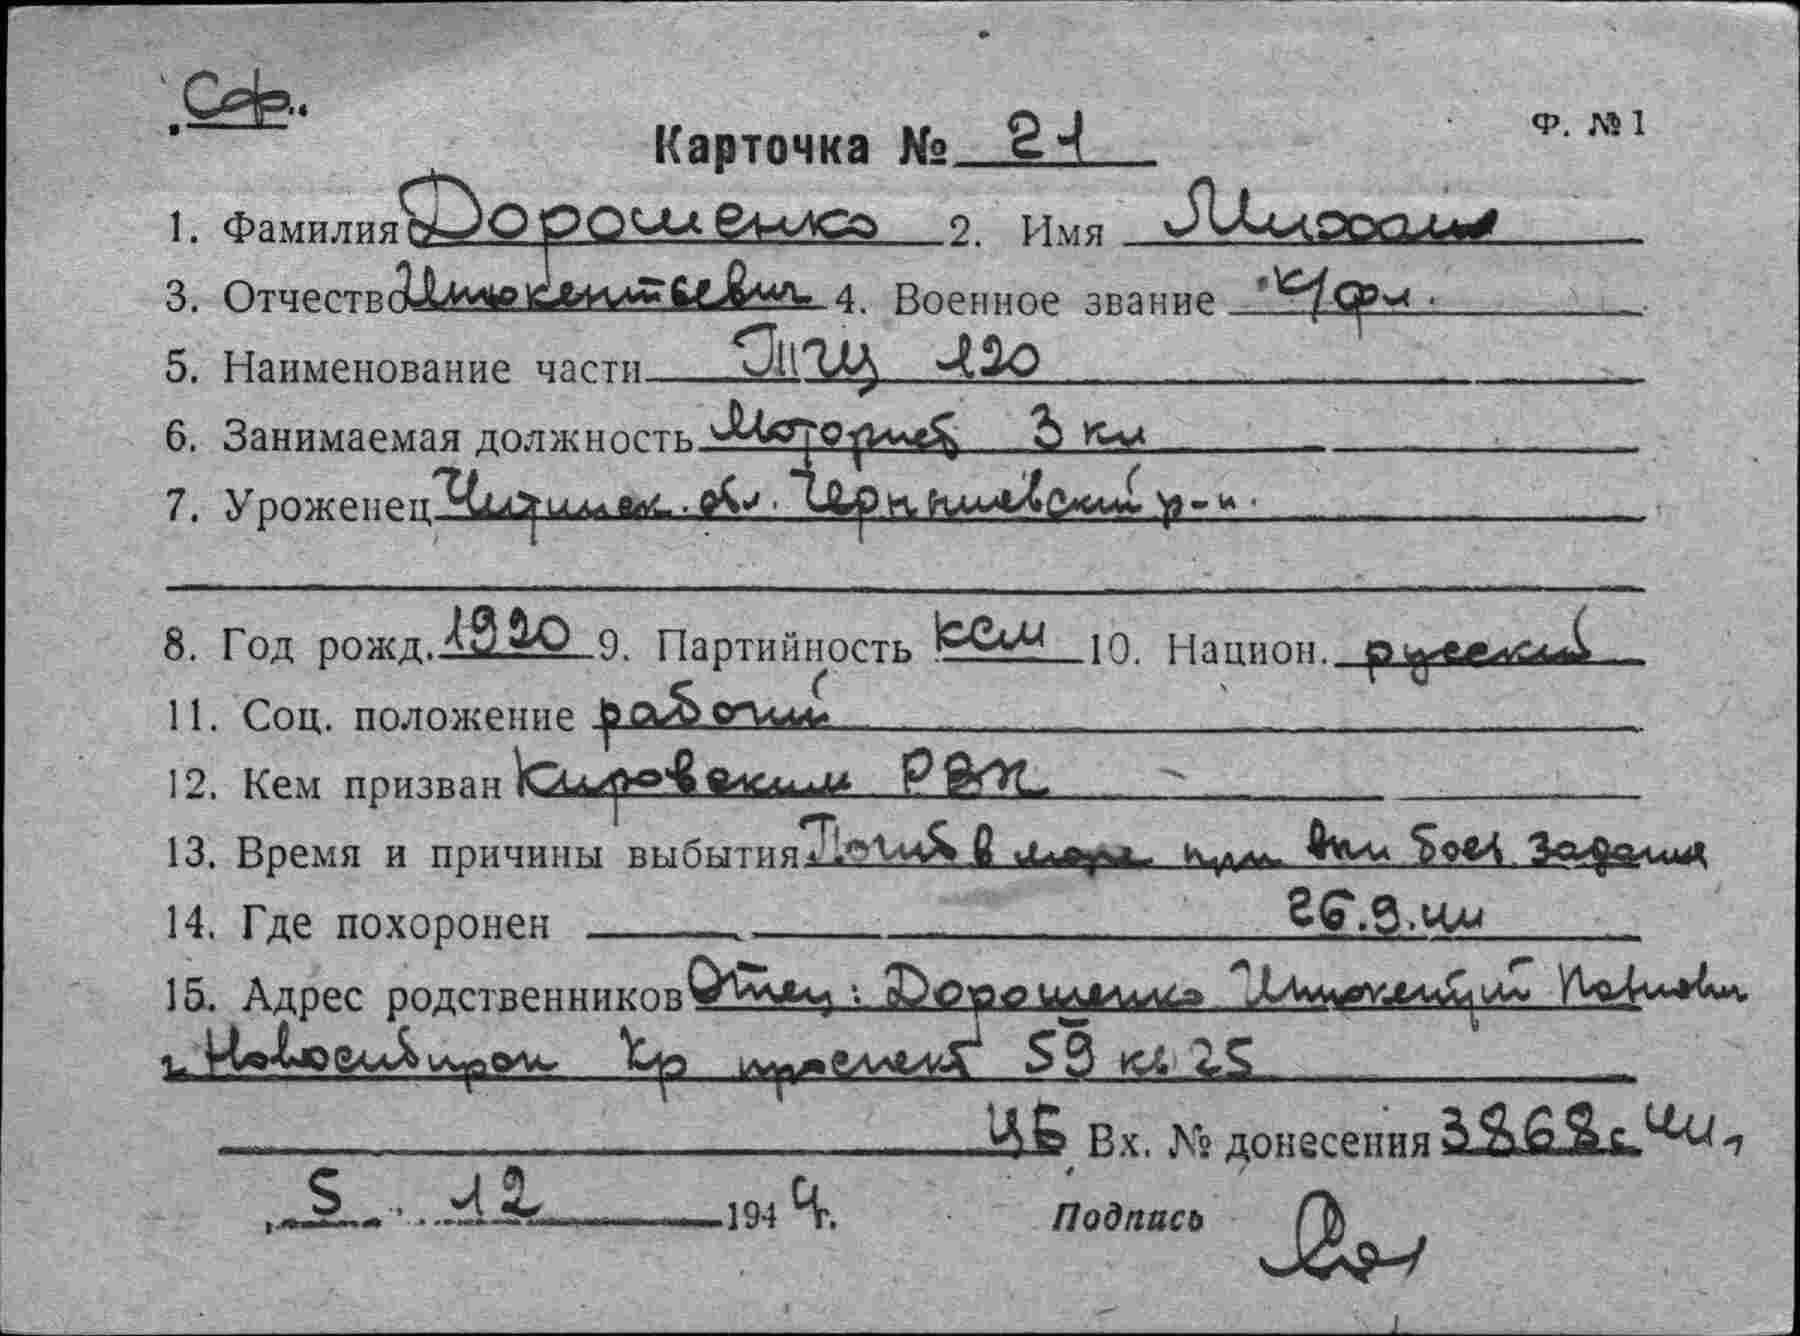 Карточка № 21 Ф. № 1
1. Фамилия Дорошенко 2. Имя Михаил
3. Отчество Инокентьевич 4. Военное звание
5. Наименование части ТЩ 120
6. Занимаемая должность Моторист 3 кл
7. Уроженец Читинск. обл. Чернышевский р-н.
8. Год рожд. 1920 9. Партийность ксм 10. Национ. русский
11. Соц. положение рабочий
12. Кем призван Кировским РВК
13. Время и причины выбытия Погиб в море при вып боев. задания
14. Где похоронен 26.9.44
15. Адрес родственников Отец: Дорошенко Инокентий
г. Новосибирск Кр проспект 59 кв 25
Вх. № донесения 3868с 44
5 12 1944 г. Подпись